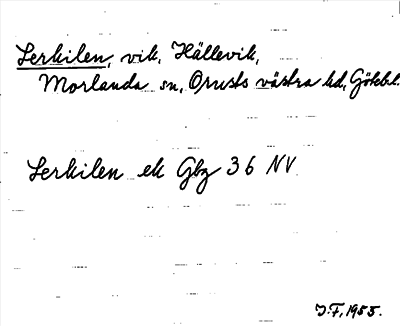 Lerkilen, vik, Hällevik,
Morlanda sn, Orusts västra hd, Götebl.
Lerkilen ek Gbg 36 NV
J.F, 1955.